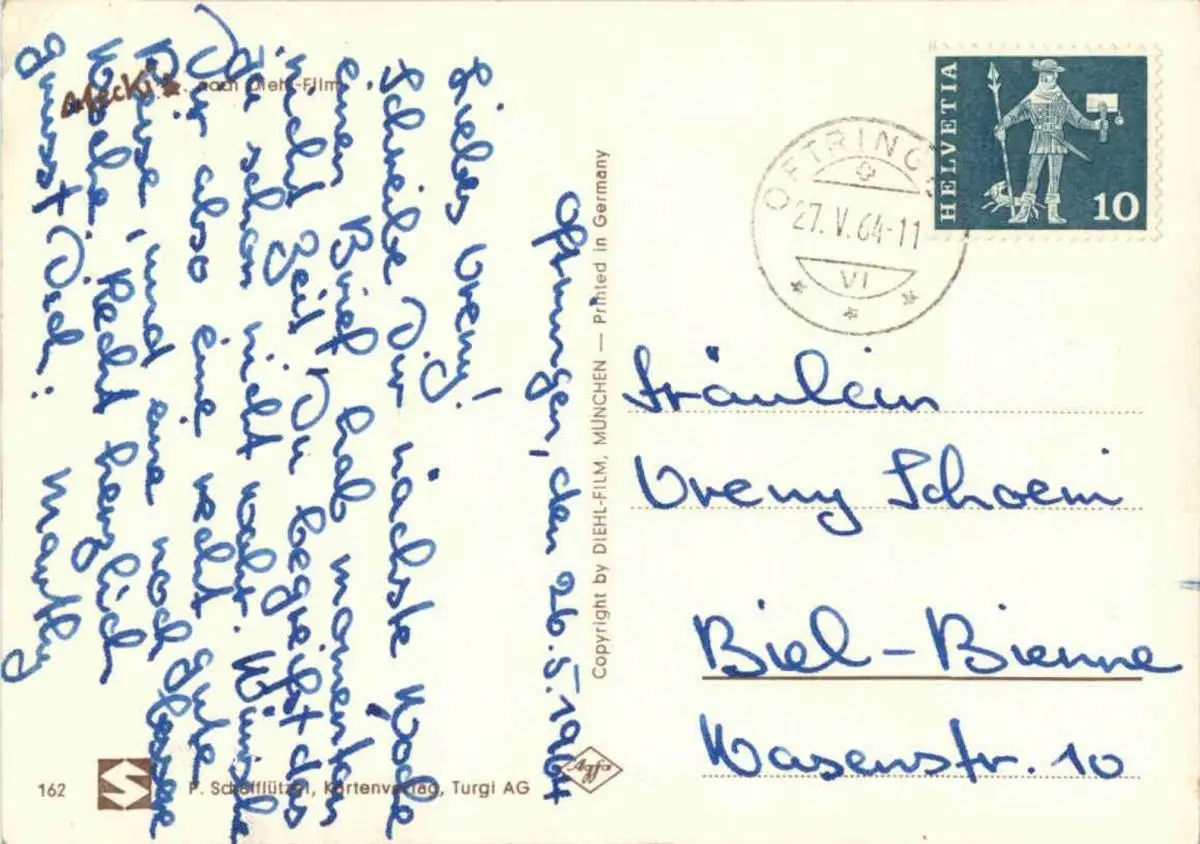 Mecki nach Diehl-Film
Oftringen, den 26.5.1964
Liebes Vreny!
Schreibe Dir nächste Woche
einen Brief hab momentan
nicht Zeit, Du begreifst das
ja schon nicht wahr. Wünsche
Dir also eine recht gute
Reise, und eine noch bessere
Woche. Recht herzlich
grüsst Dich: Marthy
162
P. Schifflützel, Kartenverlag, Turgi AG
Copyright by DIEHL-FILM, MÜNCHEN — Printed in Germany
Agfa
OFTRINGEN
27.V.64-11
VI
HELVETIA
10
Fräulein
Vreny Schoeni
Biel-Bienne
Wasenstr. 10